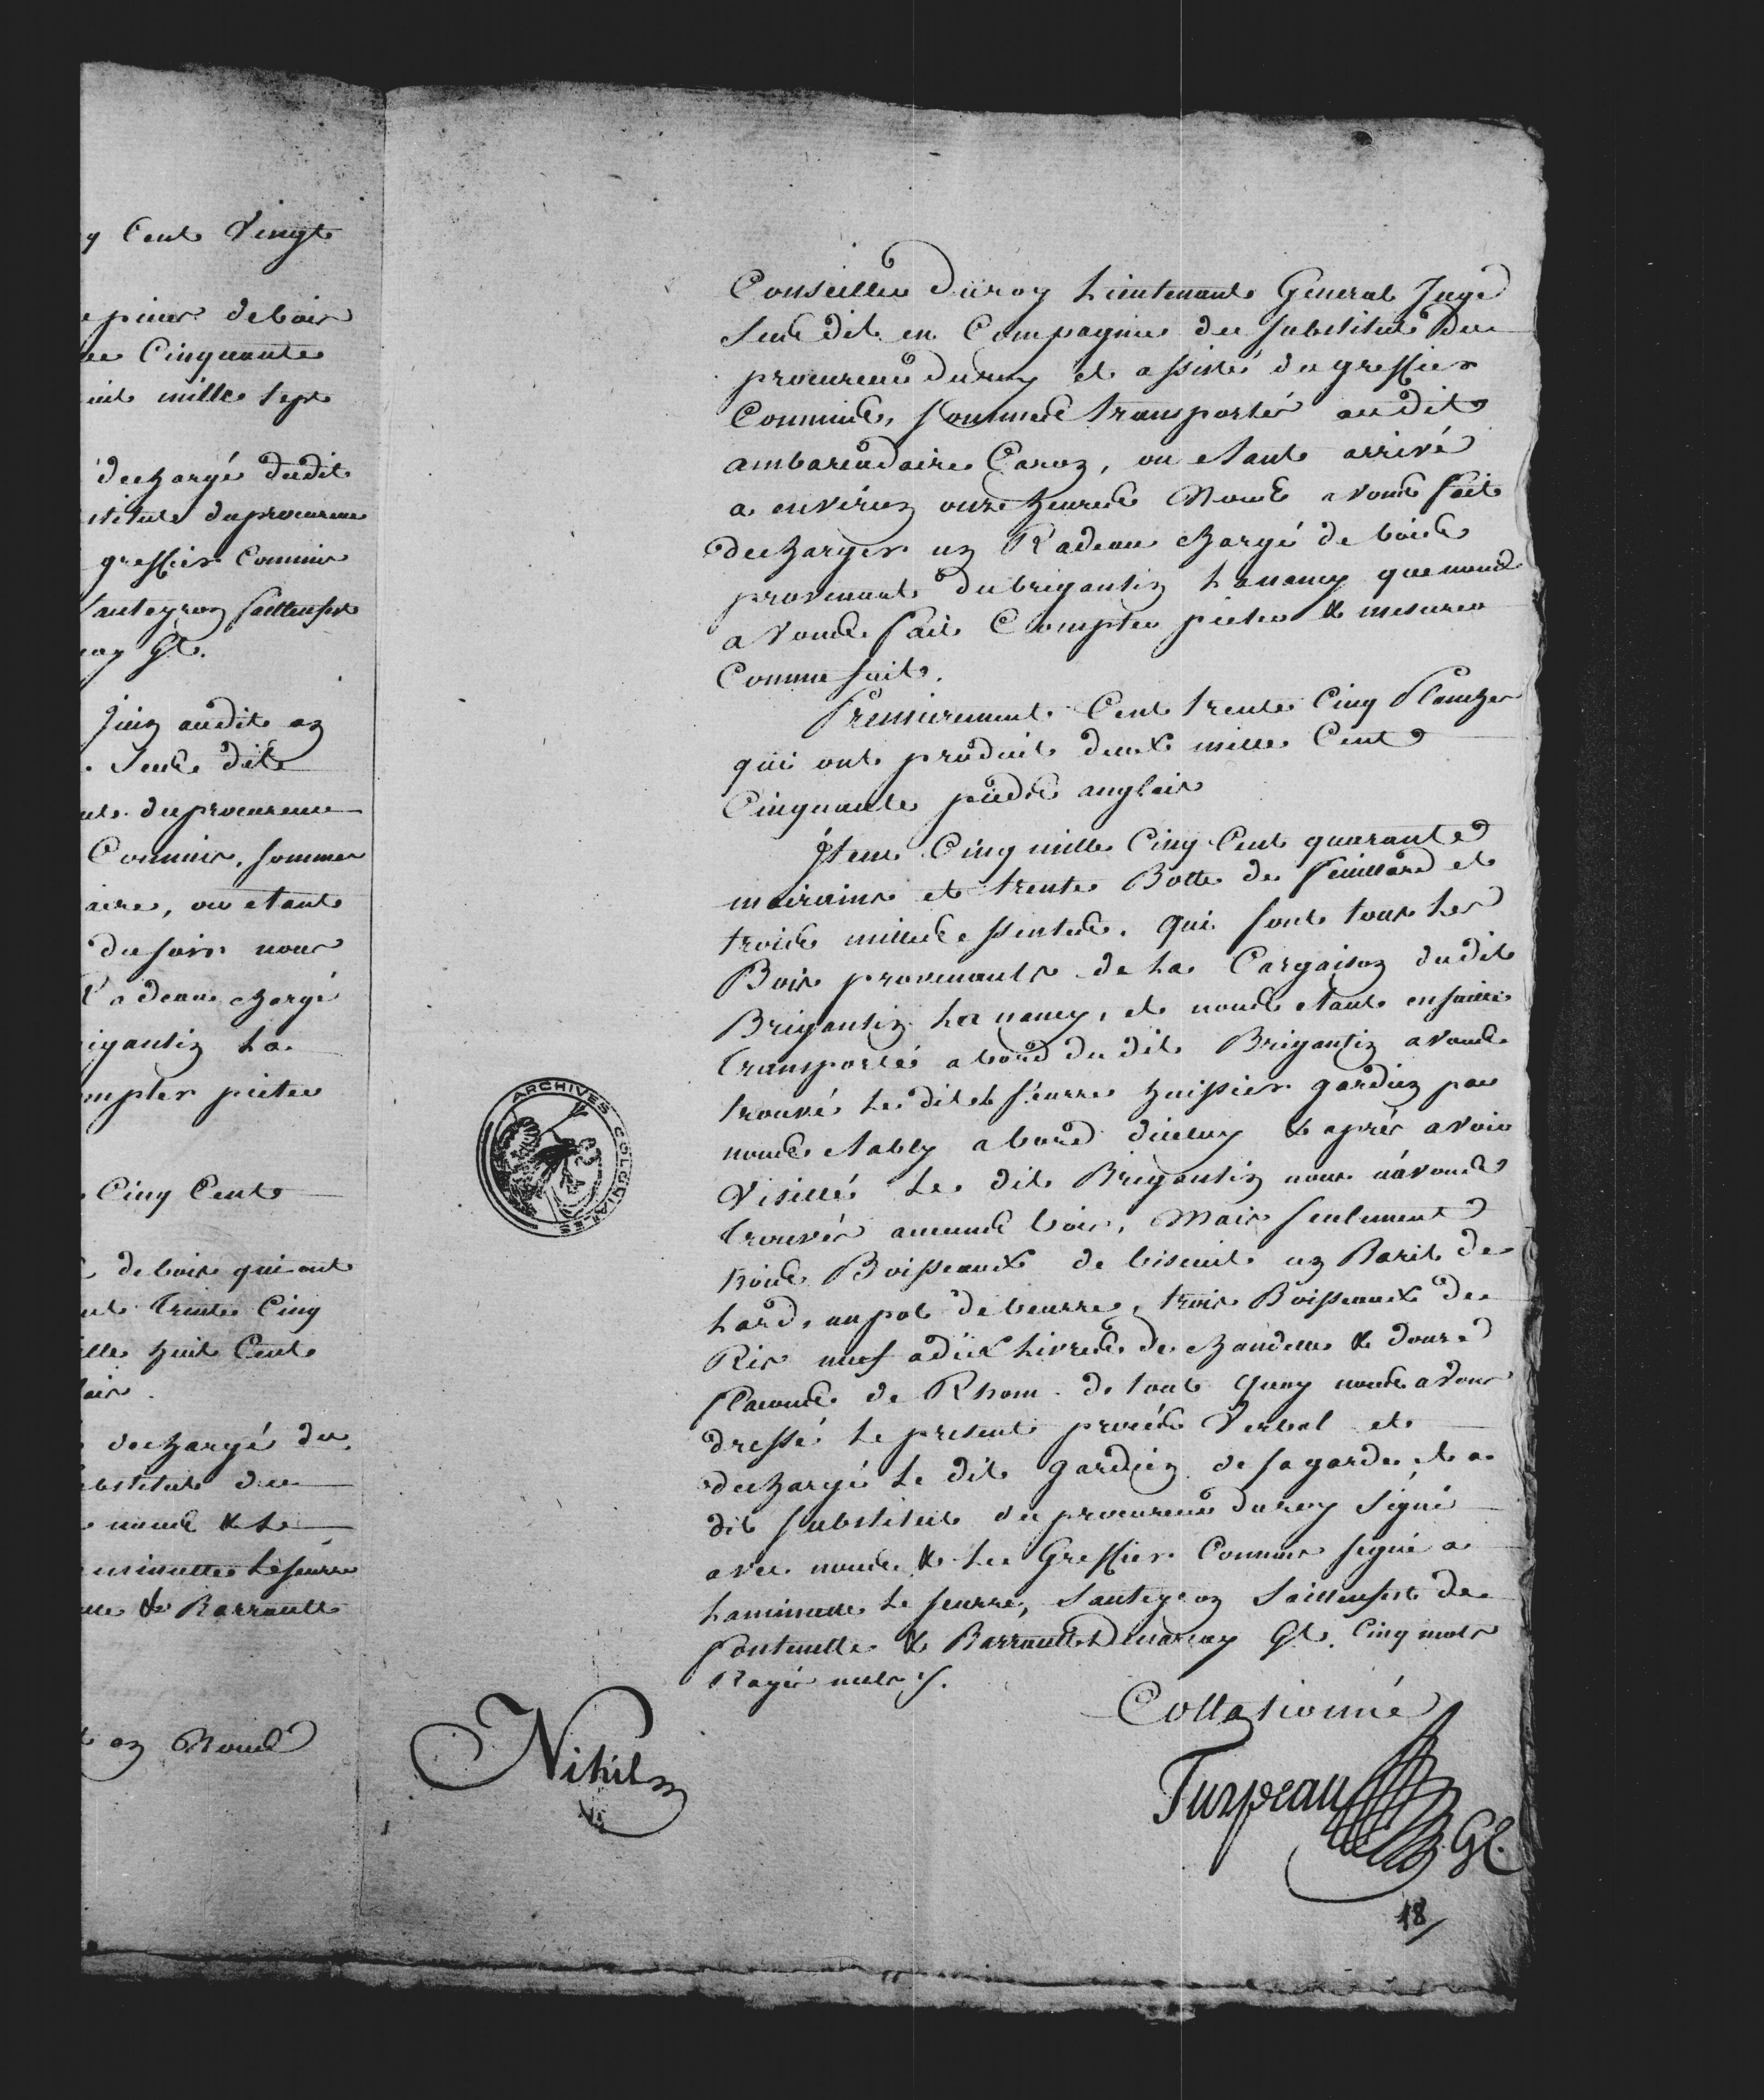 y Cent Vingt
pieces de bois
Cinquante
mille sept
dechargé dudit
du procureur
greffier Commis
Gl.
Juin audit an
dit
du procureur
Commis, sommes
aire, ou etant
du soir nous
Radeau chargé
igantin La
mpter pieter
Cinq Cent
de bois qui ont
Trente Cinq
ille huit Cent
dechargé du
bstitut du
nous & Le
minutte Leseurre
& Barrault
an Nous
Conseiller du roy Lieutenant General Juge
Sus dit en Compagnie du substitut Du
procureur du roy et assisté du greffier
Commis, sommes transportés audit
ambarcadaire Caron, ou etant arrivé
a environ onze heures Nous avons fait
decharger un Radeau chargé de bois
provenant du brigantin La nancy que nous
avons fait Compter pieter & mesurer
Comme suit.
Premierement Cent trente Cinq Planches
qui ont produit deux mille Cent
Cinquante pieds anglais
Item Cinq mille Cinq Cent quarante
mairains et trente Botte de feuillard et
trois milles essentes. qui sont tous Les
Bois provenants de La Cargaison dudit
Brigantin La nancy, et nous etant ensuitte
transporté abord du dit Brigantin avons
trouvé Ledit Leseurre huissier gardien par
nous etably abord diceluy & après avoir
Visitté Le dit Brigantin nous n'avons
trouvés aucuns bois, Mais seulement
trois Boisseaux de biscuit un Baril de
Lard, un pot de beurre, trois Boisseaux de
Ris neuf a dix Livres de chandelle & douze
flacons de Rhom. de tout quoy nous avons
dressé Le present procés Verbal et
dechargé Le dit gardien de sa garde, et a
dit substitut du procureur du roy signé
avec nous & Le Greffier Commis signé a
Laminutte Leseurre, Santeyron Saillenfest de
fontenelle & Barrault Denarcay Gl. Cinq mots
Rayé nuls /.
Collationné
Turpeau
Gl.
Nihil
18
ARCHIVES COLONIALES